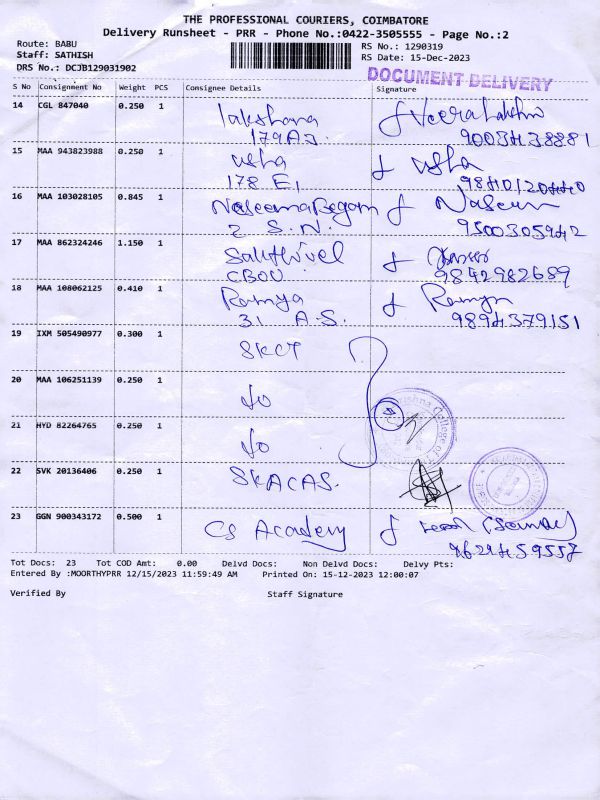 THE PROFESSIONAL COURIERS, COIMBATORE
Delivery Runsheet - PRR - Phone No.:0422-3505555 - Page No.:2
Route: BABU
Staff: SATHISH
DRS No.: DCJB129031902
RS No.: 1290319
RS Date: 15-Dec-2023
DOCUMENT DELIVERY
S No Consignment No Weight PCS Consignee Details Signature
14 CGL 847040 0.250 1 lakshana
179A3. 9003438881
15 MAA 943823988 0.250 1 usha usha
178 E1
16 MAA 103028105 0.845 1 NaseemaBegam
2 S.N. 9500305942
17 MAA 862324246 1.150 1 Sakthivel
CBOU 9842982689
18 MAA 108062125 0.410 1 Ramya Ramya
31 A.S. 9894379151
19 IXM 505490977 0.300 1 SKCT
20 MAA 106251139 0.250 1 do
21 HYD 82264765 0.250 1 do
22 SVK 20136406 0.250 1 SKACAS.
23 GGN 900343172 0.500 1 CS Academy
9629459557
Tot Docs: 23 Tot COD Amt: 0.00 Delvd Docs: Non Delvd Docs: Delvy Pts:
Entered By :MOORTHYPRR 12/15/2023 11:59:49 AM Printed On: 15-12-2023 12:00:07
Verified By Staff Signature